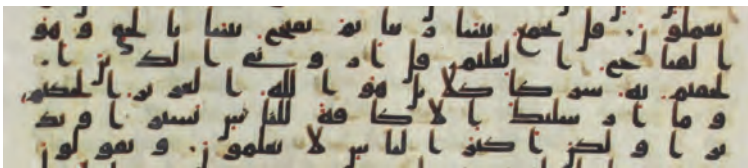 تعملون قل يجمع بيننا ربنا ثم يفتح بيننا بالحق وهو
الفتاح العليم قل ارونى الذين ا
لحقتم به شركا كلا بل هو الله العزيز الحكيم
وما ارسلنك الا كافة للناس بشيرا ونذ
يرا ولكن اكثر الناس لا يعلمون ويقولون